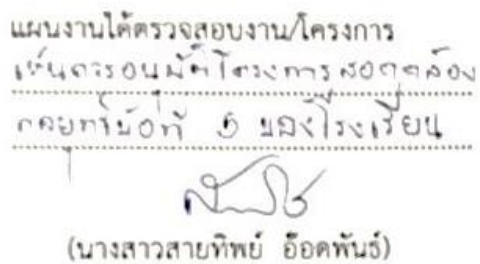 แผนงานได้ตรวจสอบงาน/โครงการ
เห็นควรอนุมัติโครงการสอดคล้อง
กลยุทธ์ข้อที่ ๖ ของโรงเรียน
(นางสาวสายทิพย์ อ๊อดพันธ์)